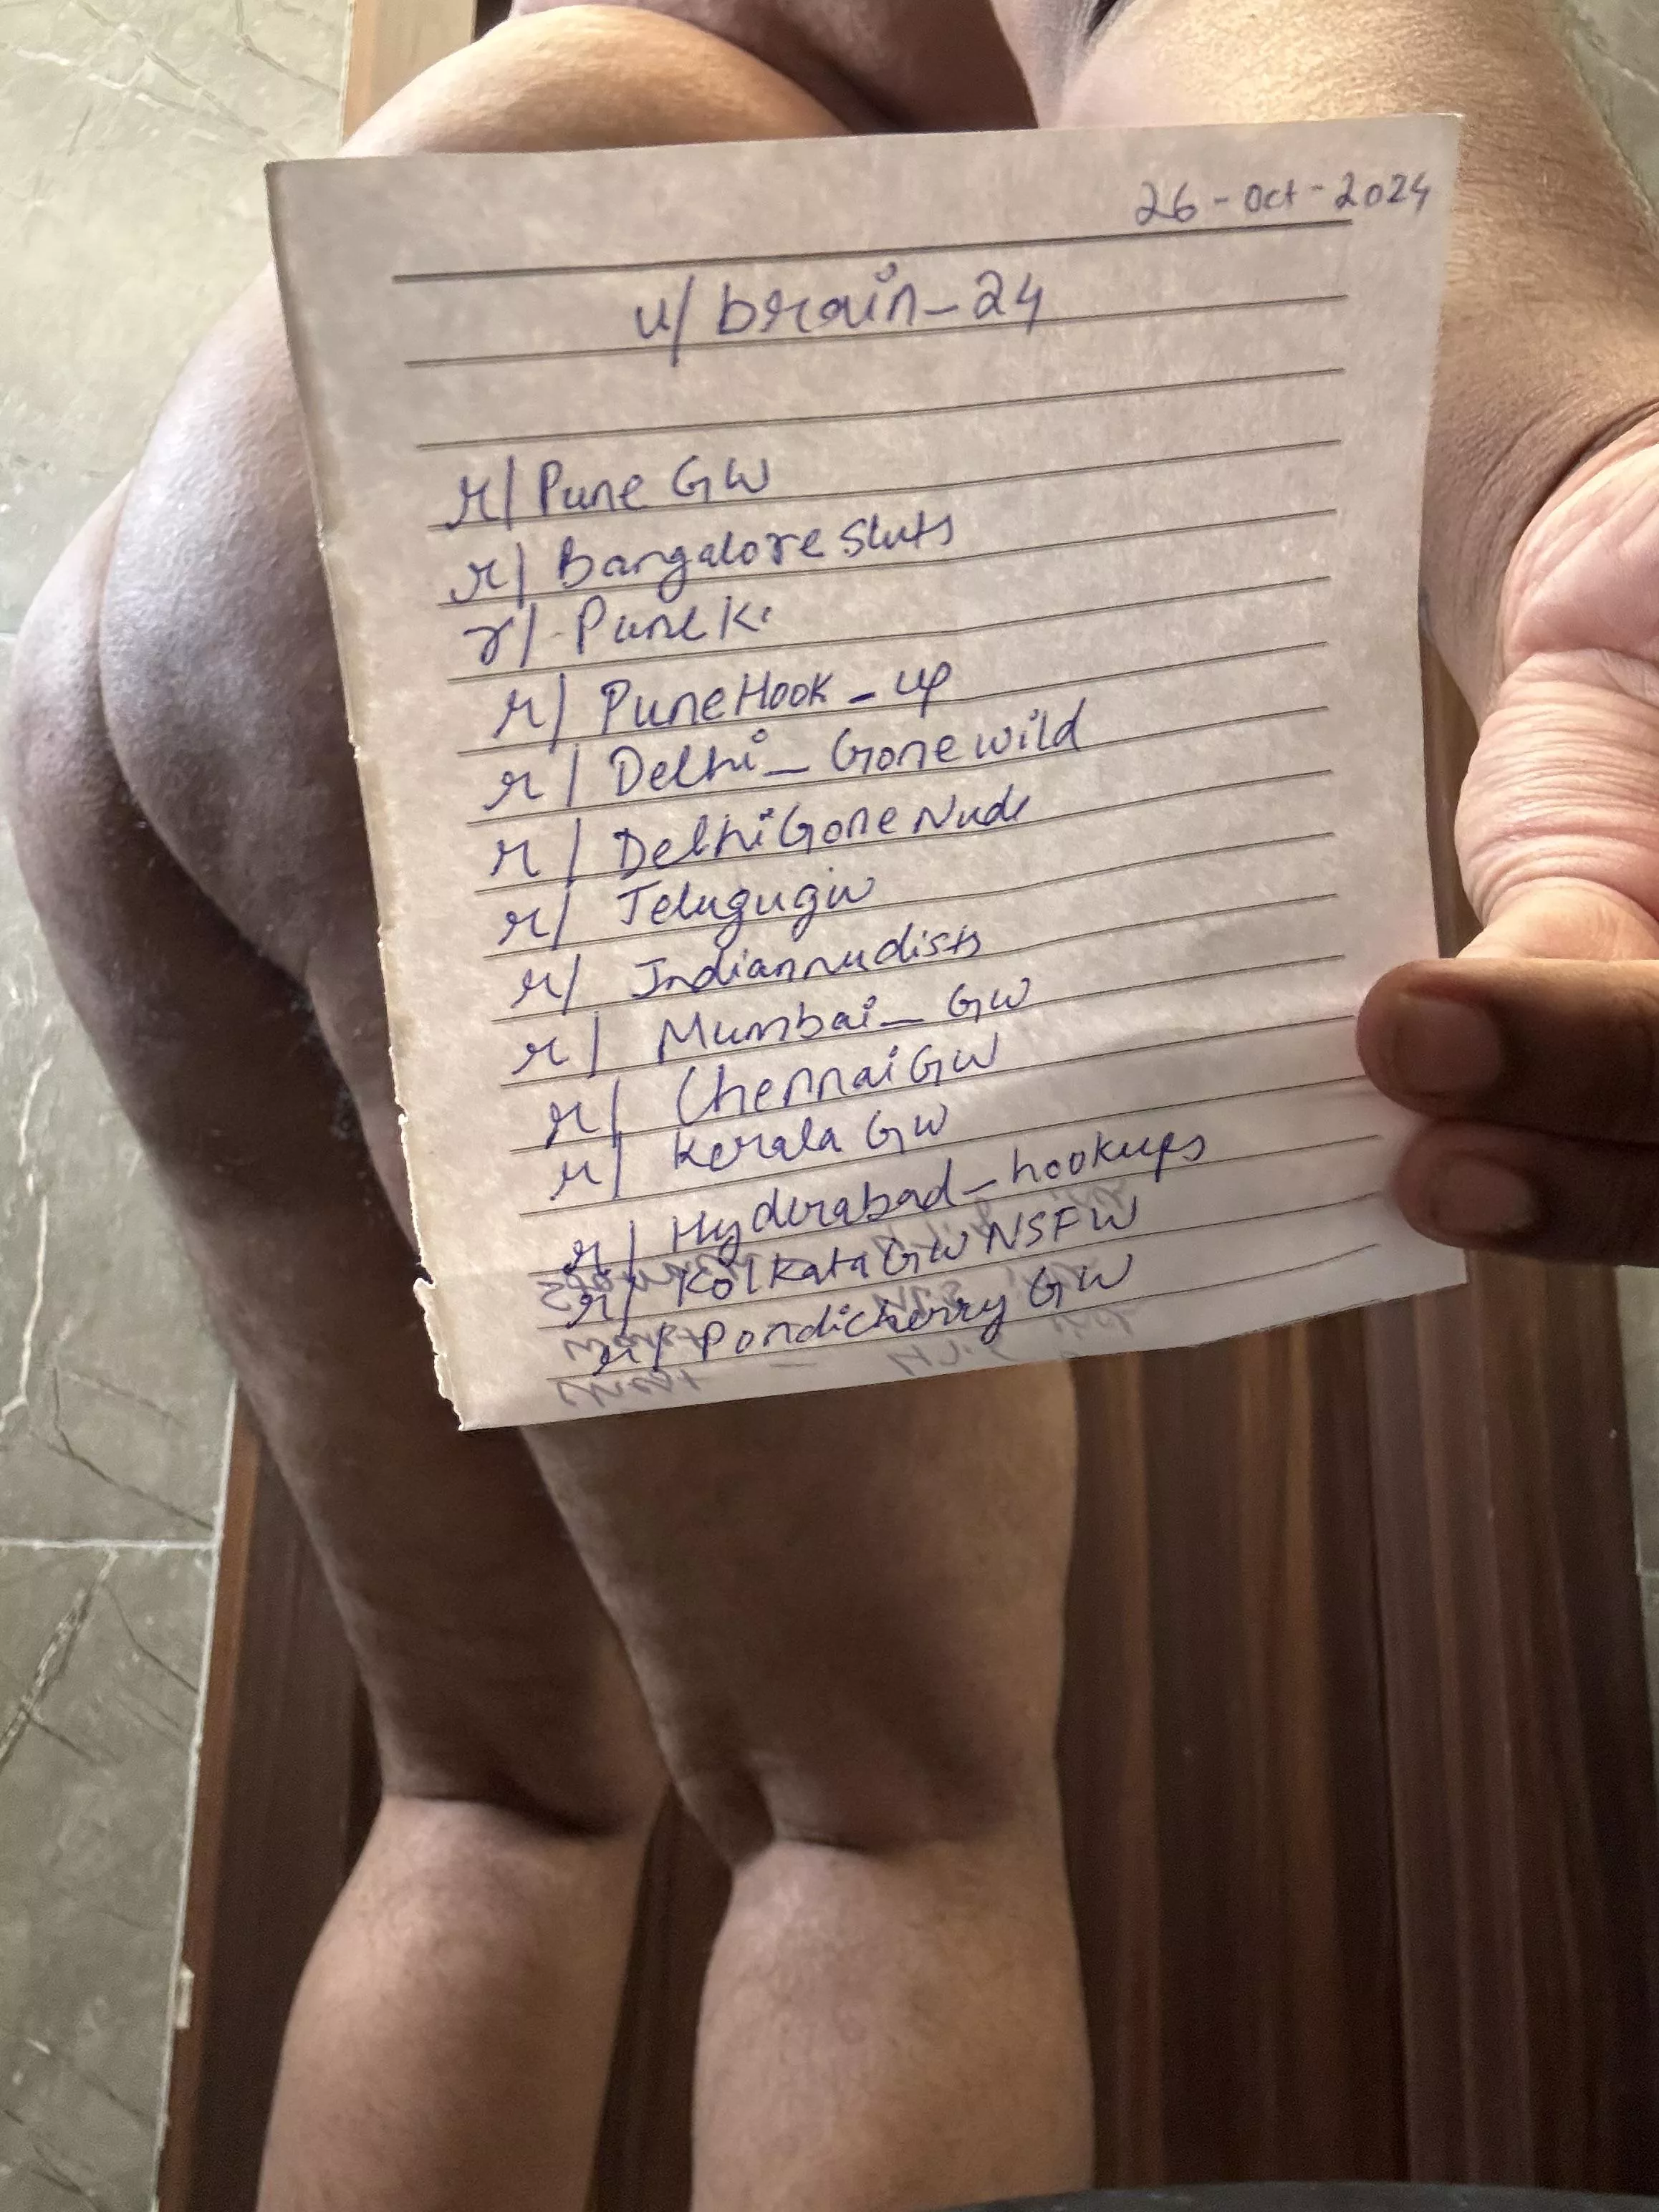 26-Oct-2024
u/brain_24
r/PuneGW
r/Bangaloresluts
r/PuneKi
r/PuneHook_up
r/Delhi_Gonewild
r/DelhiGoneNude
r/Telugugw
r/Indiannudists
r/Mumbai_GW
r/ChennaiGW
r/KeralaGW
r/Hyderabad_hookups
r/KolkataGWNSFW
r/PondicherryGW